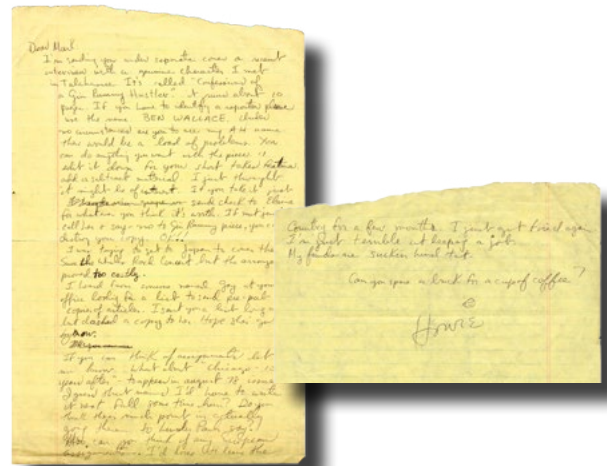 Dear Mark
I'm sending you under separate cover a recent
interview with a genuine character I met
in Talahassee. It's called "Confessions of
a Gin Rummy Hustler." It runs about 10
pages. If you have to identify a reporter please
use the name BEN WALLACE. Under
no circumstances are you to use my A.H. name
that would be a load of problems. You
can do anything you want with the piece
edit it down for your short takes
add & subtract material. I just thought
it might be of interest. If you take it just
send check to
for whatever you think it's worth. If not just
call her & say no to Gin Rummy piece,
your copy.
I was trying to get to Japan to cover the
Save the Whales Rock Concert but the
proved too costly.
I heard from someone named Joy at your
office looking for a list
copies of articles. I sent you a list long
but a copy to her. Hope she's
by now.
If you can think of assignments let
me know. What about "Chicago - 10
years after" - to appear in august 78 issue
I'd have to write
it next fall some time
there much point in actually
going there to Lincoln Park, say?
can you think of any European
assignments I'd love to leave the
Country for a few months. I just got fired again
I'm just terrible at keeping a job.
My fundraisers suckin hind tit.
Can you spare a buck for a cup of coffee?